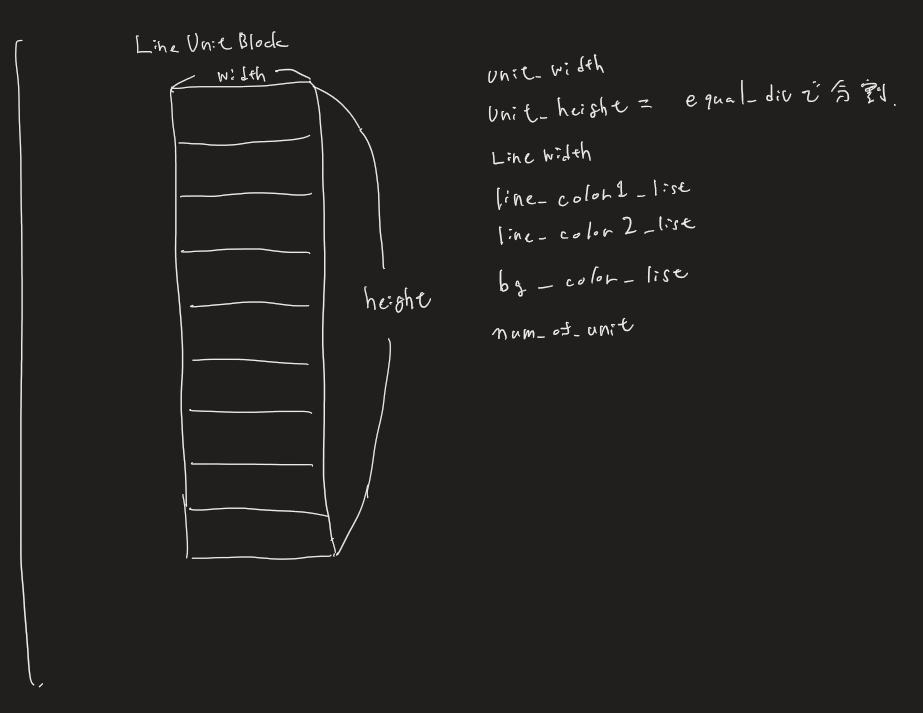 Line Unit Block
width
height
unit_width
unit_height = equal_divで分割.
Line width
line_color1_list
line_color2_list
bg_color_list
num_of_unit